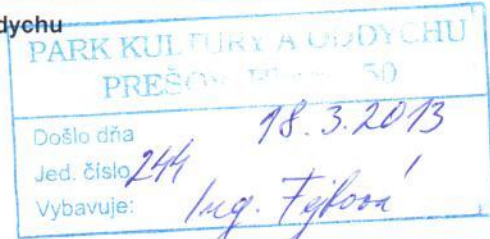 dychu
PARK KULTURY A ODDYCHU
PREŠOV 50
Došlo dňa 18. 3. 2013
Jed. číslo 244
Vybavuje: Ing.